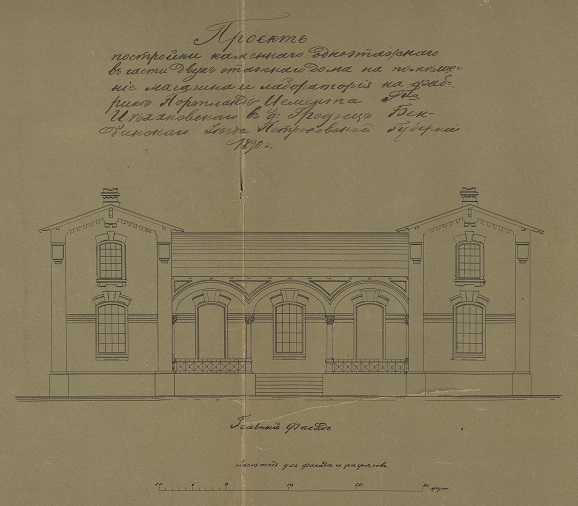 Проектъ
постройки каменнаго одноэтажнаго
въ части двухъ этажнаго дома на помѣще-
ніе магазина и лабораторія на фаб-
рикѣ Портландъ-Цемента Г-на
Цѣхановскаго въ д. Гродзецъ Бен-
динскаго уѣзда Петроковской Губерніи
1890 г.
Главный Фасадъ
Масштабъ для фасада и разрѣзовъ
10 5 0 10 20 30 футъ